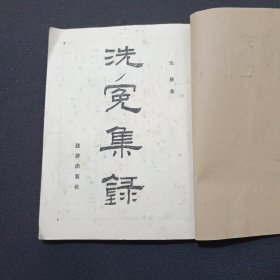 宋慈著
洗冤集录
法律出版社